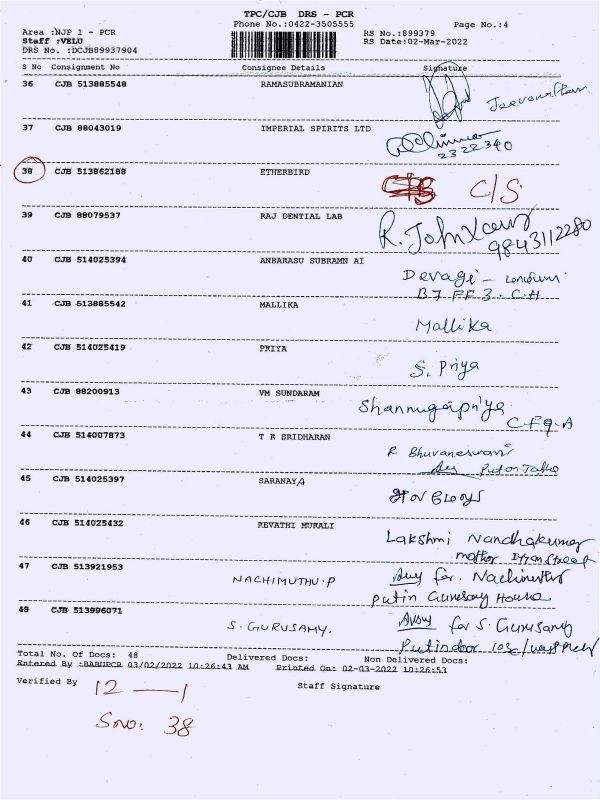 TPC/CJB DRS - PCR
Phone No.:0422-3505555
Page No.:4
Area :NJP 1 - PCR
Staff :VELU
DRS No. :DCJB89937904
RS No.:899379
RS Date:02-Mar-2022
S No Consignment No Consignee Details Signature
36 CJB 513885548 RAMASUBRAMANIAN
37 CJB 88043019 IMPERIAL SPIRITS LTD
2322340
38 CJB 513862188 ETHERBIRD C/S
39 CJB 88079537 RAJ DENTIAL LAB R. John
9843112280
40 CJB 514025394 ANBARASU SUBRAMN AI
Devagi -
B7 FF 3. C.H
41 CJB 513885542 MALLIKA Mallika
42 CJB 514025419 PRIYA S. Priya
43 CJB 88200913 VM SUNDARAM Shannugapriya
C-F9-A
44 CJB 514007873 T R SRIDHARAN R Bhuvaneswari
45 CJB 514025397 SARANAYA
46 CJB 514025432 REVATHI MURALI Lakshmi Nandhakumar
mother
47 CJB 513921953 NACHIMUTHU.P for. Nachimuthu
Putin House
48 CJB 513996071 S. GURUSAMY. for S. Gurusamy
Putindoor
Total No. Of Docs: 48 Delivered Docs: Non Delivered Docs:
Entered By :BABUPCR 03/02/2022 10:26:43 AM Printed On: 02-03-2022 10:26:53
Verified By 12 — 1 Staff Signature
Sno: 38